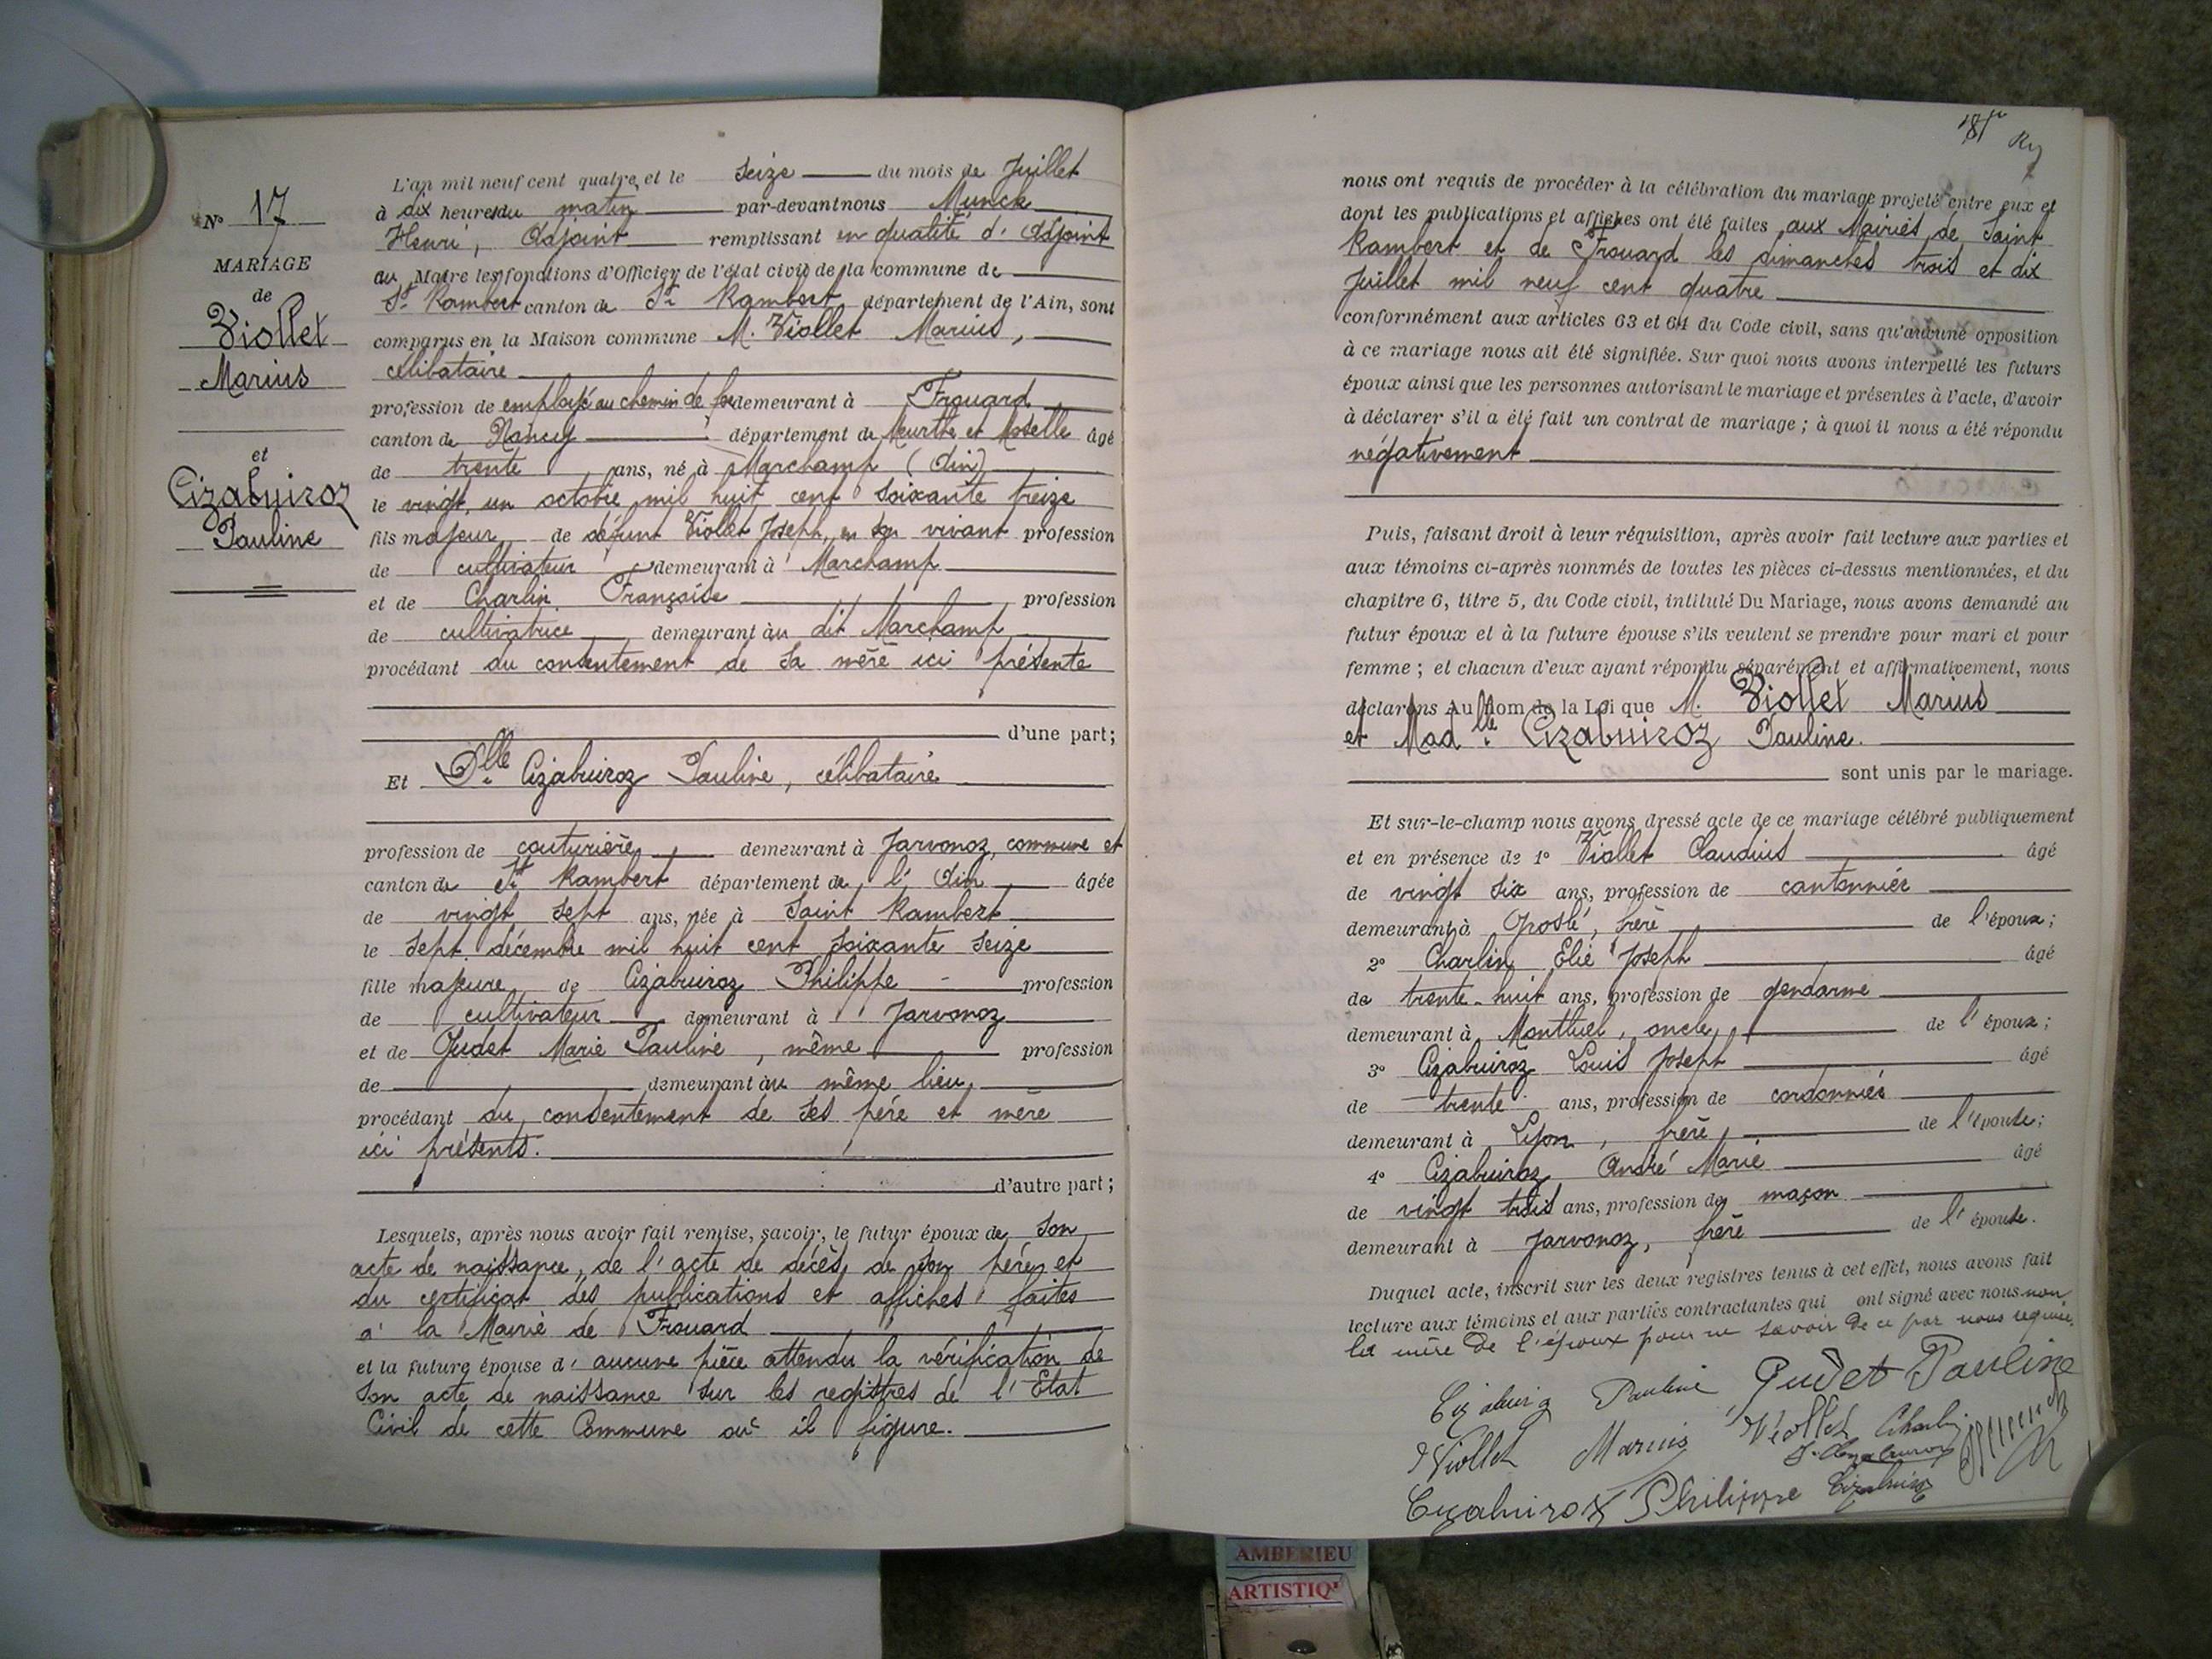 N° 17
MARIAGE
de
Viollet
Marius
et
Cizabuiroz
Pauline
L'an mil neuf cent quatre, et le seize du mois de Juillet
à dix heures du matin par-devant nous Munck
Henri, Adjoint remplissant en qualité d'Adjoint
au Maire les fonctions d'Officier de l'état civil de la commune de
St Rambert canton de St Rambert, département de l'Ain, sont
comparus en la Maison commune M. Viollet Marius,
célibataire
profession de employé au chemin de fer demeurant à Frouard
canton de Nancy département de Meurthe et Moselle âgé
de trente ans, né à Marchamp (Ain)
le vingt un octobre mil huit cent soixante treize
fils majeur de défunt Viollet Joseph, en son vivant profession
de cultivateur demeurant à Marchamp
et de Charlin Françoise profession
de cultivatrice demeurant au dit Marchamp
procédant du consentement de sa mère ici présente
d'une part;
Et Dlle Cizabuiroz Pauline, célibataire
profession de couturière demeurant à Javornoz, commune et
canton de St Rambert département de l'Ain âgée
de vingt sept ans, née à Saint Rambert
le sept décembre mil huit cent soixante seize
fille majeure de Cizabuiroz Philippe profession
de cultivateur demeurant à Javornoz
et de Gudet Marie Pauline, même profession
de demeurant au même lieu,
procédant du consentement de ses père et mère
ici présents.
d'autre part;
Lesquels, après nous avoir fait remise, savoir, le futur époux de son
acte de naissance, de l'acte de décès de son père et
du certificat des publications et affiches faites
à la Mairie de Frouard
et la future épouse d'aucune pièce attendu la vérification de
son acte de naissance sur les registres de l'Etat
Civil de cette Commune où il figure.
nous ont requis de procéder à la célébration du mariage projeté entre eux et
dont les publications et affiches ont été faites aux Mairies de Saint
Rambert et de Frouard les dimanches trois et dix
Juillet mil neuf cent quatre
conformément aux articles 63 et 64 du Code civil, sans qu'aucune opposition
à ce mariage nous ait été signifiée. Sur quoi nous avons interpellé les futurs
époux ainsi que les personnes autorisant le mariage et présentes à l'acte, d'avoir
à déclarer s'il a été fait un contrat de mariage; à quoi il nous a été répondu
négativement
Puis, faisant droit à leur réquisition, après avoir fait lecture aux parties et
aux témoins ci-après nommés de toutes les pièces ci-dessus mentionnées, et du
chapitre 6, titre 5, du Code civil, intitulé Du Mariage, nous avons demandé au
futur époux et à la future épouse s'ils veulent se prendre pour mari et pour
femme; et chacun d'eux ayant répondu séparément et affirmativement, nous
déclarons Au Nom de la Loi que M. Viollet Marius
et Madlle Cizabuiroz Pauline.
sont unis par le mariage.
Et sur-le-champ nous avons dressé acte de ce mariage célébré publiquement
et en présence de 1° Viollet Claudius âgé
de vingt six ans, profession de cantonnier
demeurant à Groslé, frère de l'époux;
2° Charlin Elie Joseph âgé
de trente-huit ans, profession de gendarme
demeurant à Montluel, oncle, de l'époux;
3° Cizabuiroz Louis Joseph âgé
de trente ans, profession de cordonnier
demeurant à Lyon, frère, de l'épouse;
4° Cizabuiroz André Marie âgé
de vingt trois ans, profession de maçon
demeurant à Javornoz, frère de l'épouse.
Duquel acte, inscrit sur les deux registres tenus à cet effet, nous avons fait
lecture aux témoins et aux parties contractantes qui ont signé avec nous non
la mère de l'époux pour ne savoir de ce par nous requise.
Cizabuiroz Pauline Gudet Pauline
Viollet Marius Viollet Charlin
Cizabuiroz Philippe Cizabuiroz
AMBERIEU
ARTISTIQ'